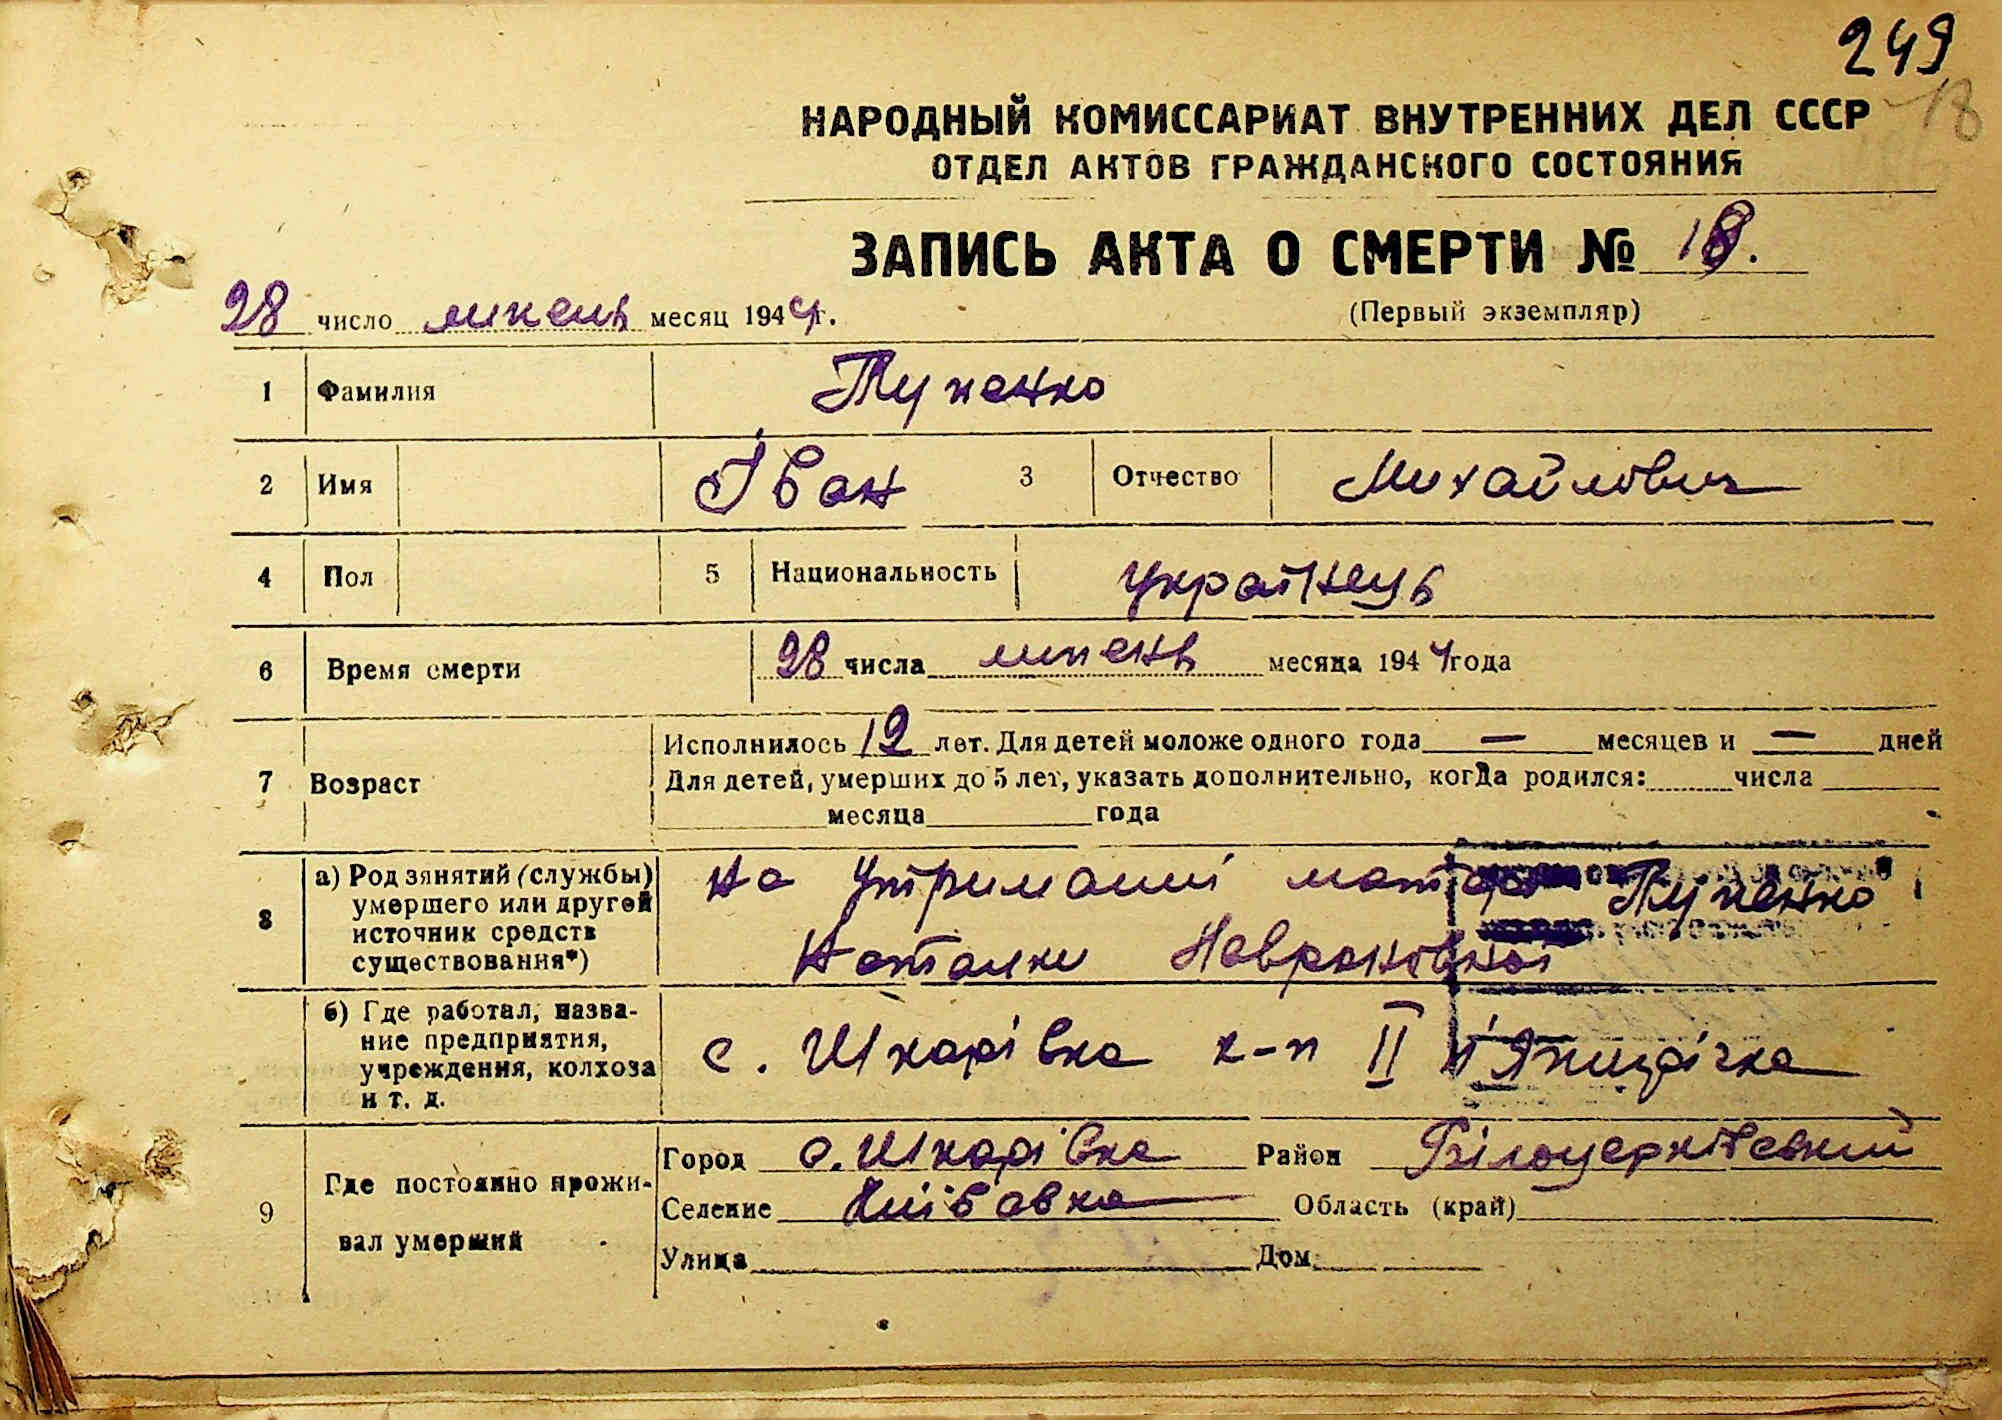 249
18
НАРОДНЫЙ КОМИССАРИАТ ВНУТРЕННИХ ДЕЛ СССР
ОТДЕЛ АКТОВ ГРАЖДАНСКОГО СОСТОЯНИЯ
ЗАПИСЬ АКТА О СМЕРТИ № 18.
28 число липень месяц 1944г.
(Первый экземпляр)
1 Фамилия
2 Имя Іван 3 Отчество Михайлович
4 Пол 5 Национальность українець
6 Время смерти 28 числа липень месяца 1944 года
Исполнилось 12 лет. Для детей моложе одного года — месяцев и — дней
7 Возраст Для детей, умерших до 5 лет, указать дополнительно, когда родился: числа
месяца года
8 а) Род занятий (службы) умершего или другой источник средств существования*) на утриманні матері
Наталки
б) Где работал, название предприятия, учреждения, колхоза и т. д. с. Шкарівка к-п II П'ятирічка
9 Где постоянно проживал умерший Город с. Шкарівка Район Білоцерківський
Селение Область (край)
Улица Дом